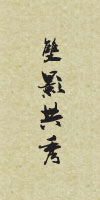 壁影共秀